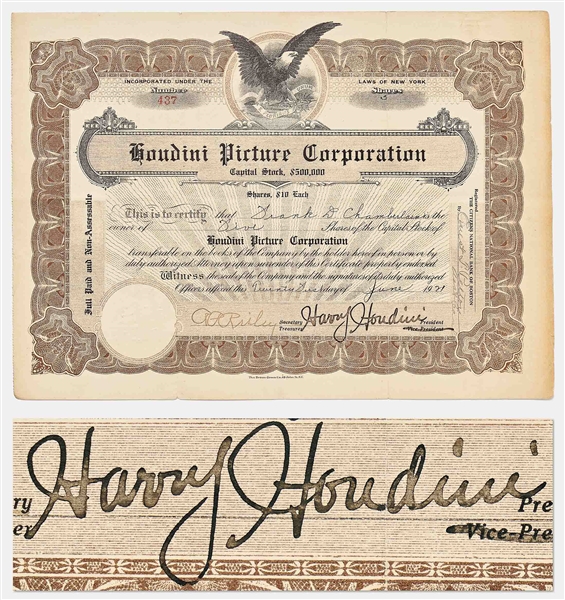 INCORPORATED UNDER THE LAWS OF NEW YORK
Number Shares
437 5
Houdini Picture Corporation
Capital Stock, $500,000
Shares, $10 Each
This is to certify that Frank D. Chamberlain is the
owner of Five Shares of the Capital Stock of
Houdini Picture Corporation
transferable on the books of the Company by the holder hereof in person or by
duly authorized Attorney upon surrender of this Certificate properly endorsed
Witness the seal of the Company and the signatures of its duly authorized
Officers affixed this day of June 1921
Secretary Harry Houdini President
Treasurer Vice-President
Full Paid and Non-Assessable
Registered
THE CITIZENS NATIONAL BANK OF BOSTON
By
Harry Houdini
ry Pre
er Vice-Pre